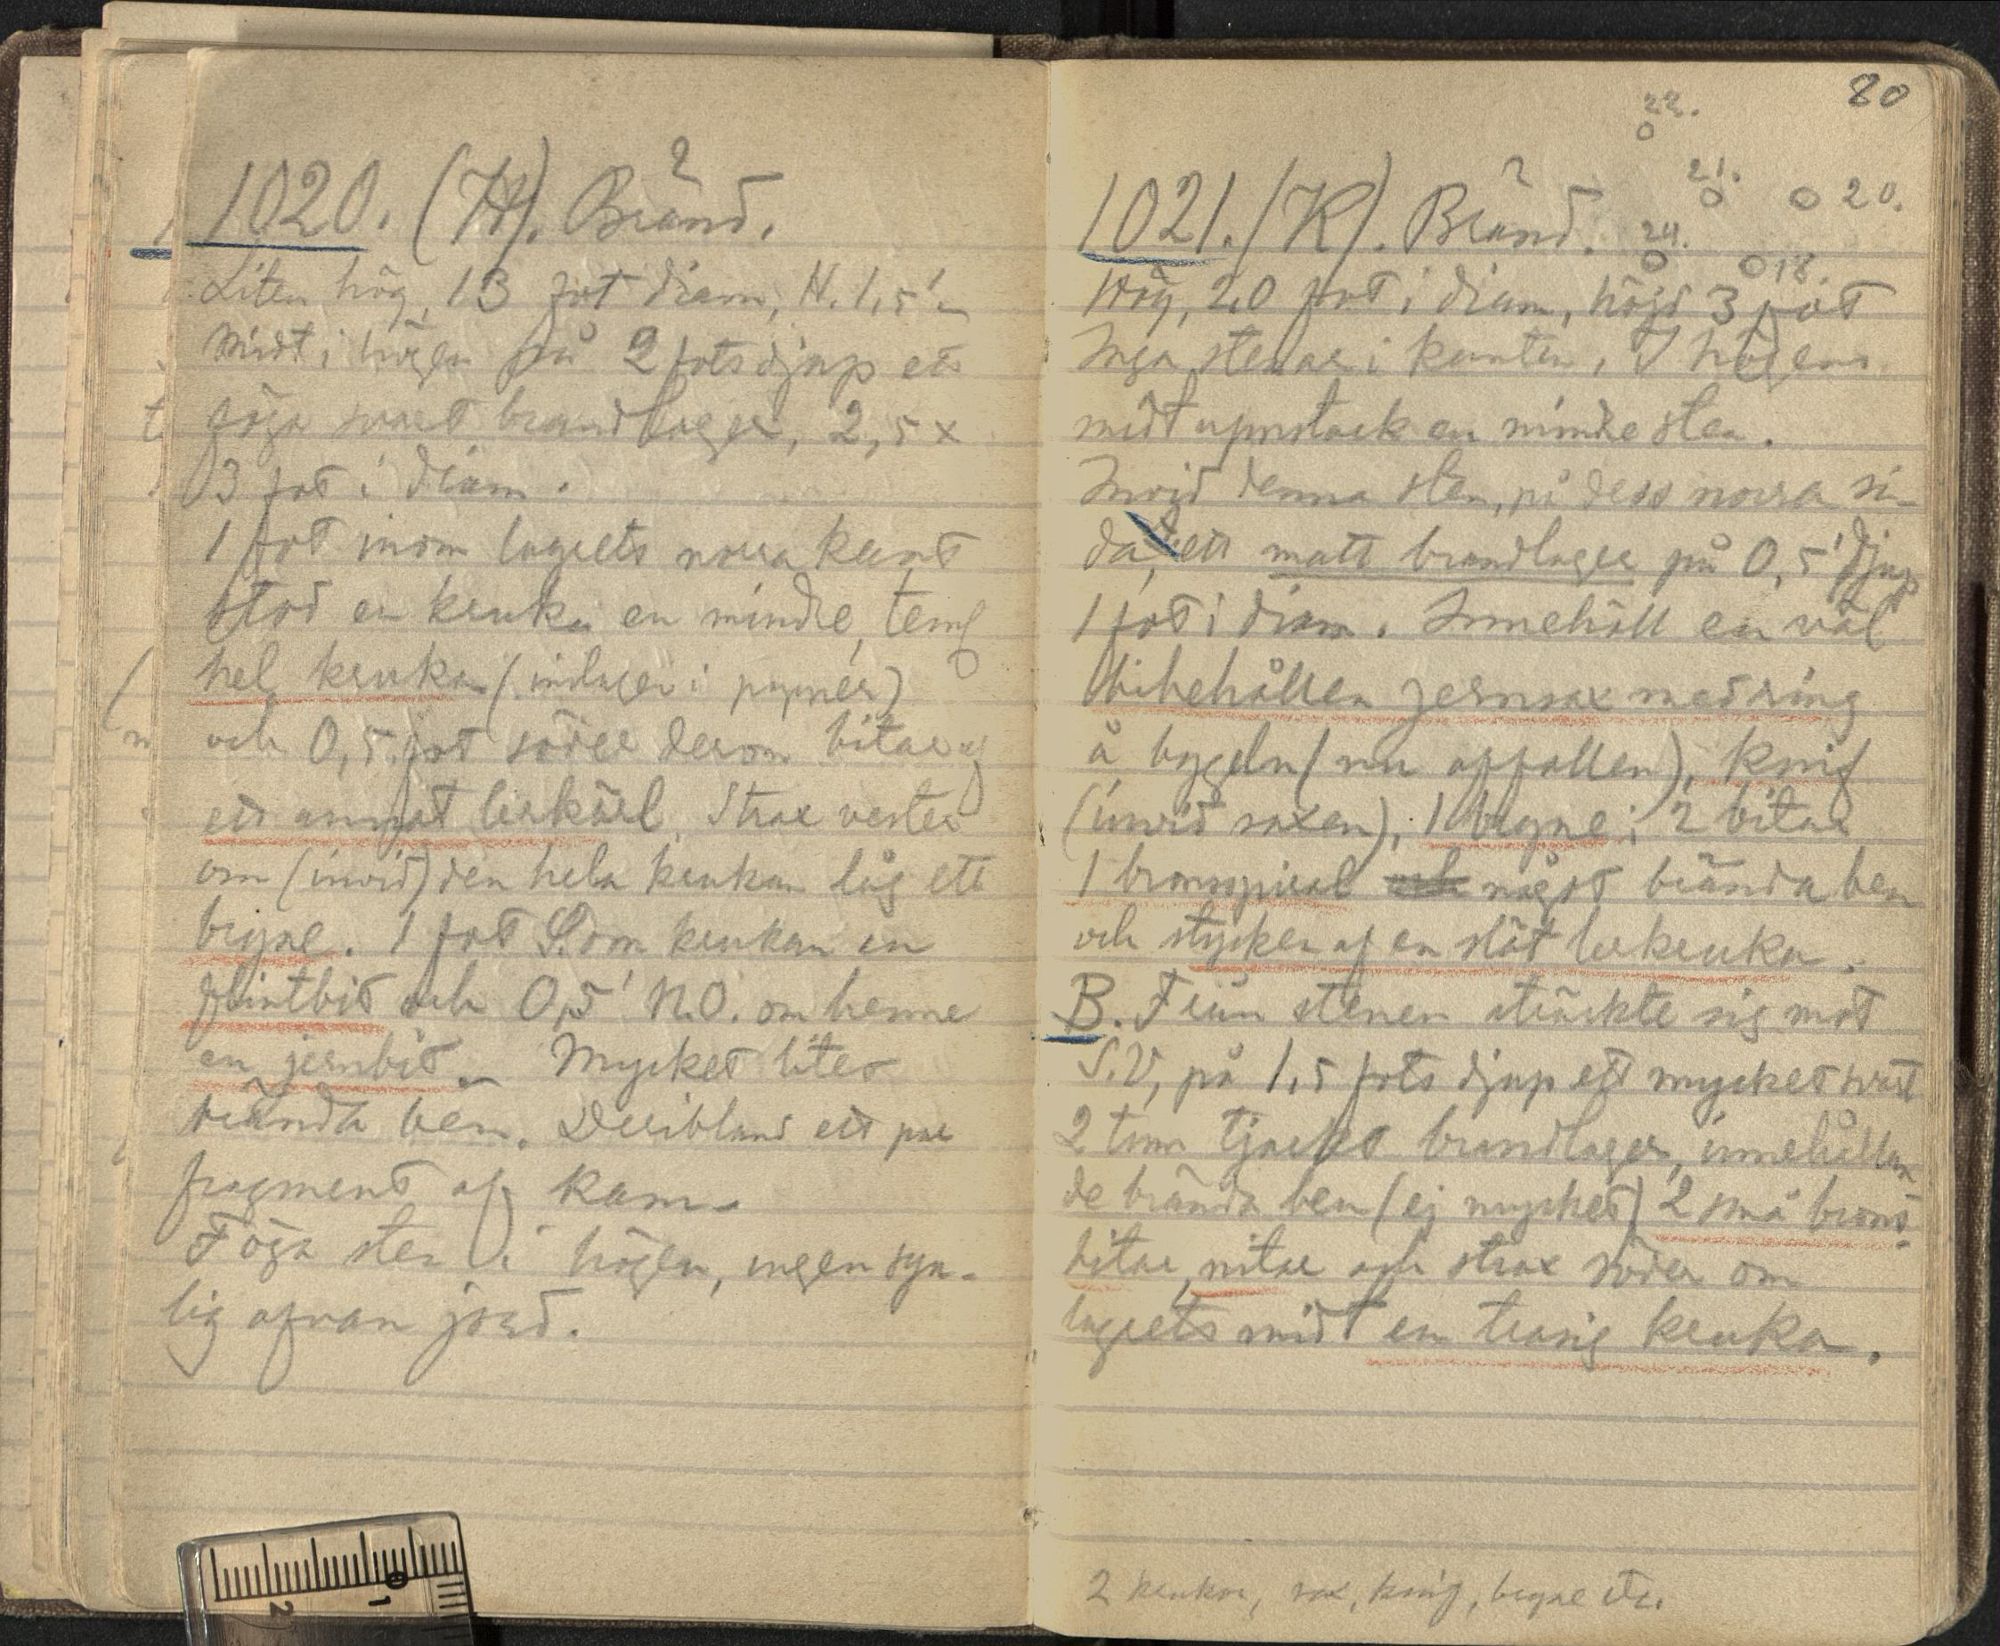 1020. (H). Bränd.
Liten hög, 13 fot diam, H. 1,5'
Midt i högen på 2 fots djup ett
föga svart brandlager, 2,5 x
3 fot i diam.
1 fot inom lagrets norra kant
stod en kruka en mindre, teml
hel kruka (inlagd i papper)
och 0,5 fot söder derom bitar af
ett annat lerkärl. Strax vester
om (invid) den hela krukan låg ett
bryne. 1 fot S. om krukan en
flintbit och 0,5' N.O. om henne
en jernbit. Mycket litet
brända ben. Deribland ett par
fragment af kam.
Föga sten i högen, ingen syn-
lig ofvan jord.
80
22.
21.
20.
24.
18.
1021. (K). Bränd.
Hög, 20 fot i diam, höjd 3 fot
Inga stenar i kanten, I högens
midt uppstack en mindre sten.
Invid denna sten, på dess norra si-
da, ett matt brandlager på 0,5' djup
1 fot i diam. Innehöll en väl
bibehållen jernsax med ring
å bygeln (nu affallen), knif
(invid saxen), 1 bryne i 2 bitar
1 bronsspiral och något brända ben
och stycken af en slät lerkruka.
B. Från stenen sträckte sig mot
S.V, på 1,5 fots djup ett mycket svart
2 tum tjockt brandlager, innehållan
de brända ben (ej mycket) 2 små brons-
bitar, nitar och strax söder om
lagrets midt en trasig kruka.
2 krukor, sax, knif, bryne etc.